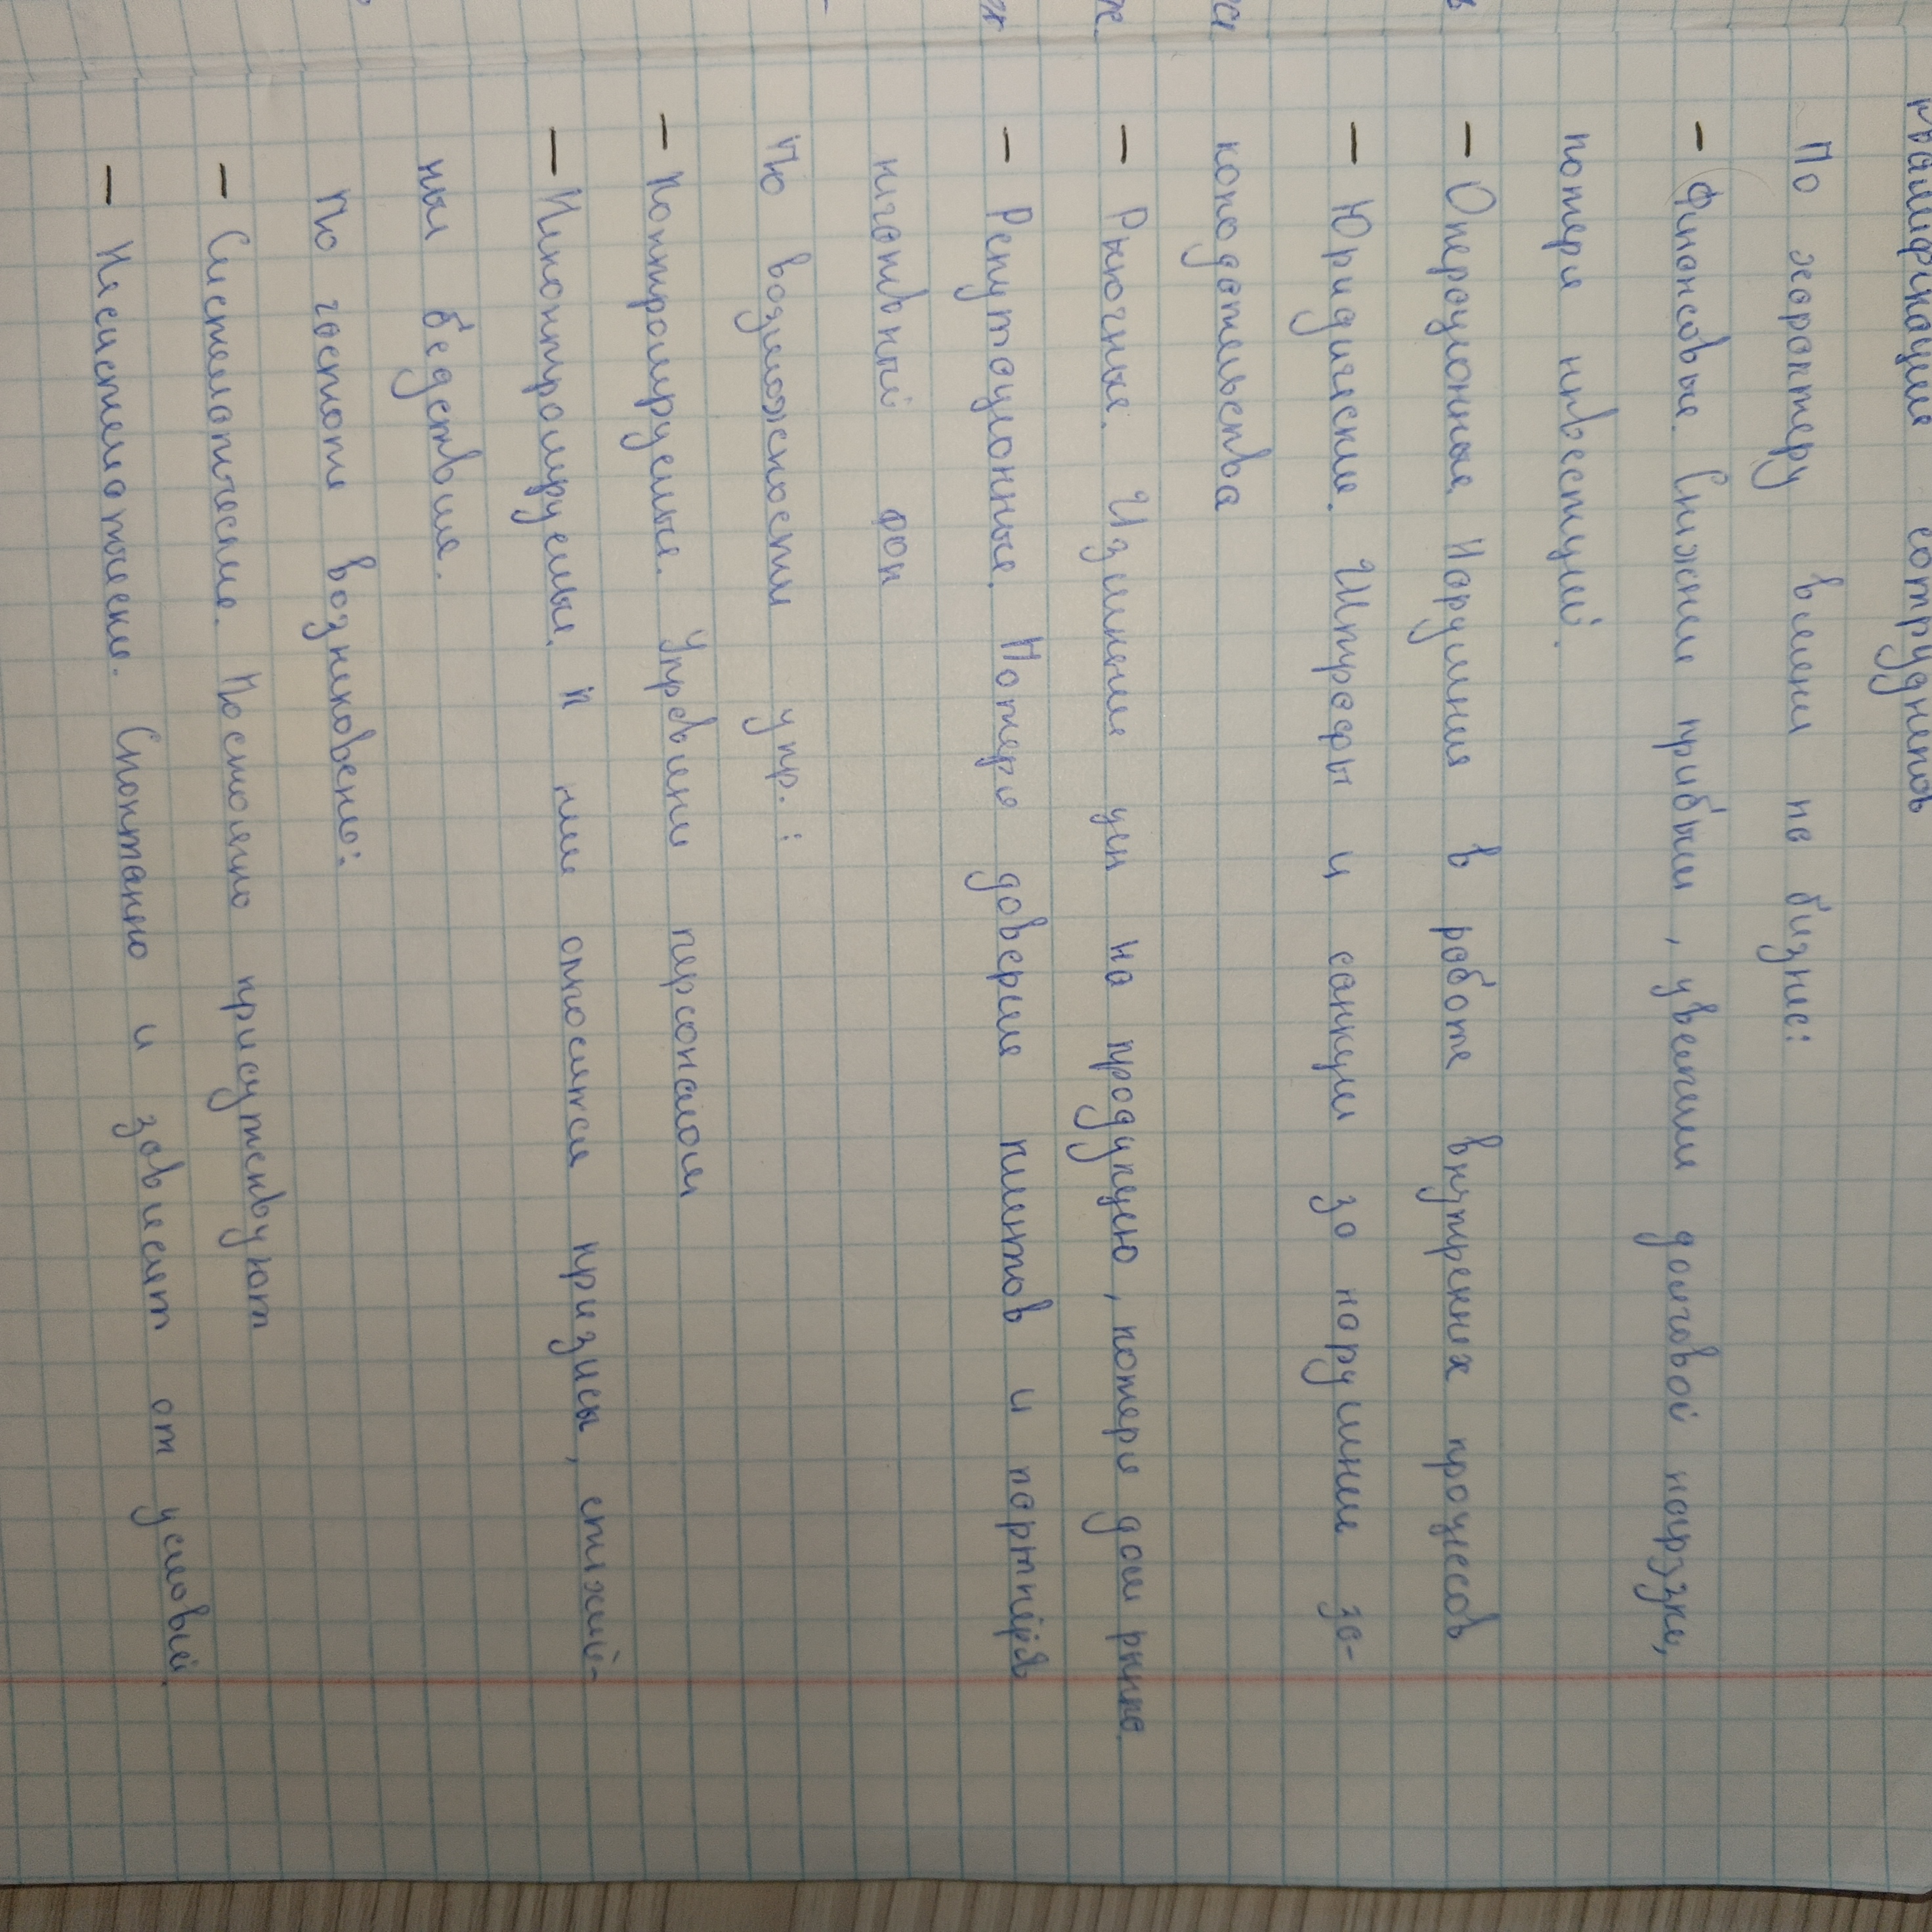 квалификации сотрудников
По характеру влияни на бизнес:
– Финансовые. Снижение прибыли, увеличении долговой нагрузки,
потеря инвестиций.
– Операционные. Нарушения в работе внутренних процессов
– Юридические. Штрафы и санкции за нарушении за-
конодательства
– Рыночные. Изменение цен на продукцию, потеря доли рынка
– Репутационные. Потеря доверия клиентов и партнёров
негативный фон
По возможности упр.:
– Контролируемые. Управлени персоналом
– Неконтролируемые. К ним относятся кризисы, стихий-
ные бедствия.
По частоте возникновено:
– Систематические. Постоянно присутствуют
– Несистематические. Спонтанно и зависят от условий